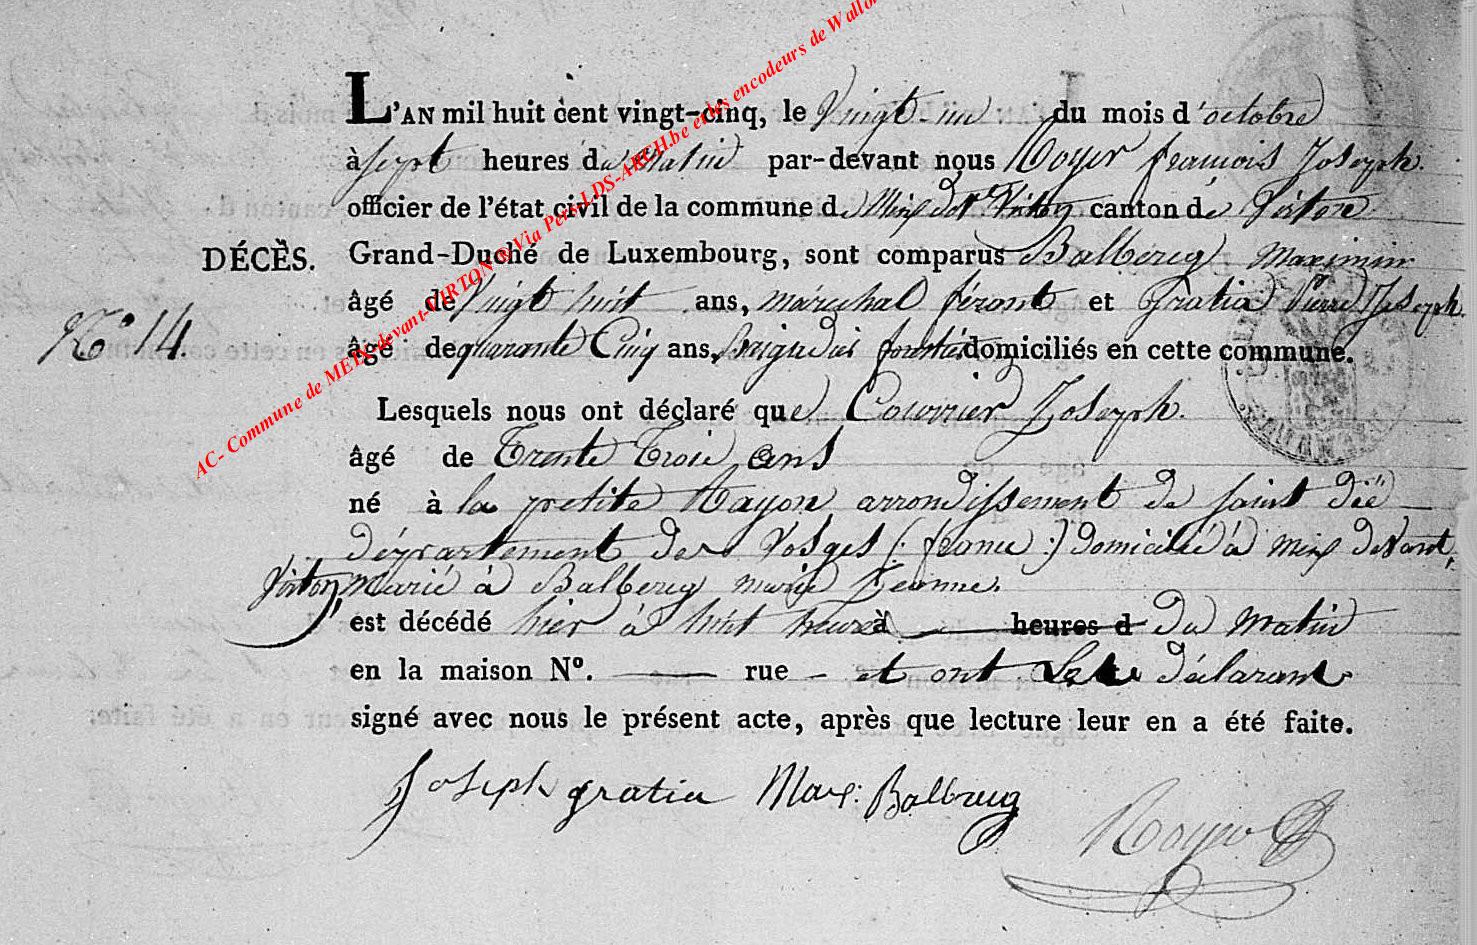 L'AN mil huit cent vingt-cinq, le Vingt-un du mois d'octobre
à sept heures du Matin par-devant nous Royer françois Joseph.
officier de l'état civil de la commune de Meix dvt Virton canton de Virton
DÉCÈS. Grand-Duché de Luxembourg, sont comparus Balbereg Maximin
âgé de Vingt huit ans, maréchal féront et Gratia Pierre Joseph.
N° 14. âgé de quarante Cinq ans, Brigadier forestier domiciliés en cette commune.
Lesquels nous ont déclaré que Couvrier Joseph.
âgé de Trente Trois ans
né à la petite Rayon arrondissement de saint dié
département des Vosges (: france :) domicilié à meix devant
Virton, marié à Balbereg marie Jeanne.
est décédé hier à huit heures à heures d du matin
en la maison N°. — rue - et ont Les déclarants
signé avec nous le présent acte, après que lecture leur en a été faite.
Joseph gratia Max: Balbereg
Royer
AC- Commune de MEIX-devant-VIRTON ® Via Pers-LDS-ARCH.be et les encodeurs de Wallo